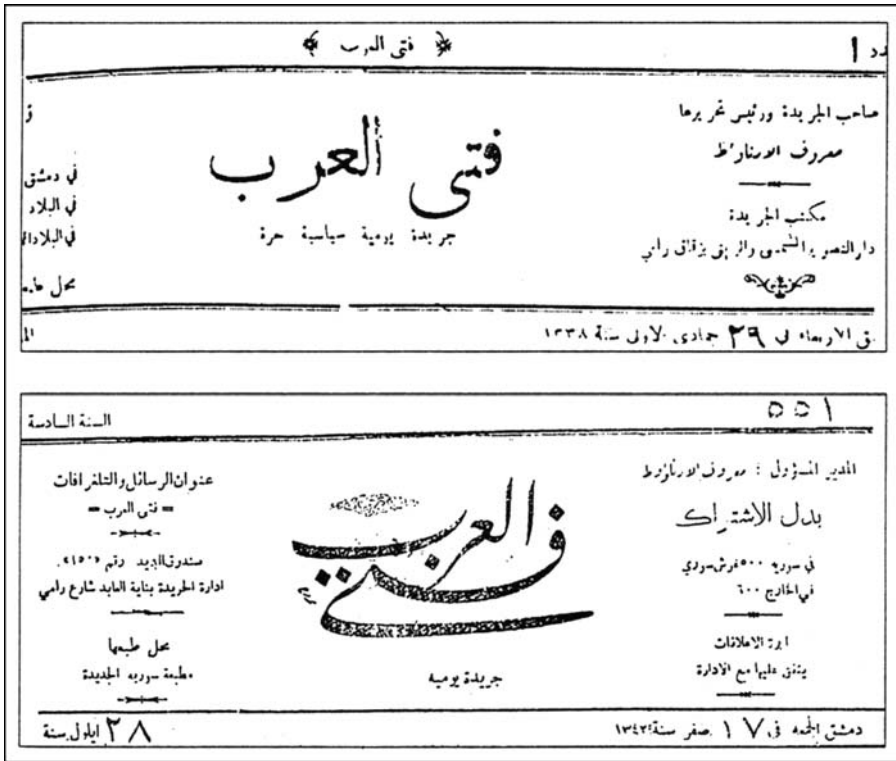 دد ١
فتى العرب
صاحب الجريدة ورئيس تحريرها
معروف الارناؤط
مكتب الجريدة
دار التصوير الشمسي والزيتي بزقاق رامي
فتى العرب
جريدة يومية سياسية حرة
في دمشق
في البلاد
في البلاد
محل طبع
ق الاربعاء في ٢٩ جمادى الاولى سنة ١٣٣٨
٥٥١
السنة السادسة
المدير المسؤول : معروف الارناؤوط
بدل الاشتراك
في سوريه ٥٠٠ غرش سوري
في الخارج ٦٠٠
اجرة الاعلانات
يتفق عليها مع الادارة
فتى العرب
جريدة يوميه
عنوان الرسائل والتلغرافات
= فتى العرب =
صندوق البريد رقم «١٥٠»
ادارة الجريدة بناية العابد شارع رامي
محل طبعها
مطبعة سوريه الجديدة
دمشق الجمعه في ١٧ صفر سنة ١٣٤٢
٢٨ ايلول سنة